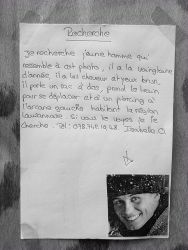 Recherche
Je recherche jeune homme qui
ressemble à cet photo, il a la vingtaine
d'année, il a les cheveux et yeux brun,
il porte un sac à dos, prend le train
pour se déplacer et a un piercing à
l'arcane gauche habitant la région
Lausannoise si vous le voyez je le
cherche. Tel: 078.741.19.48 Isabella O.